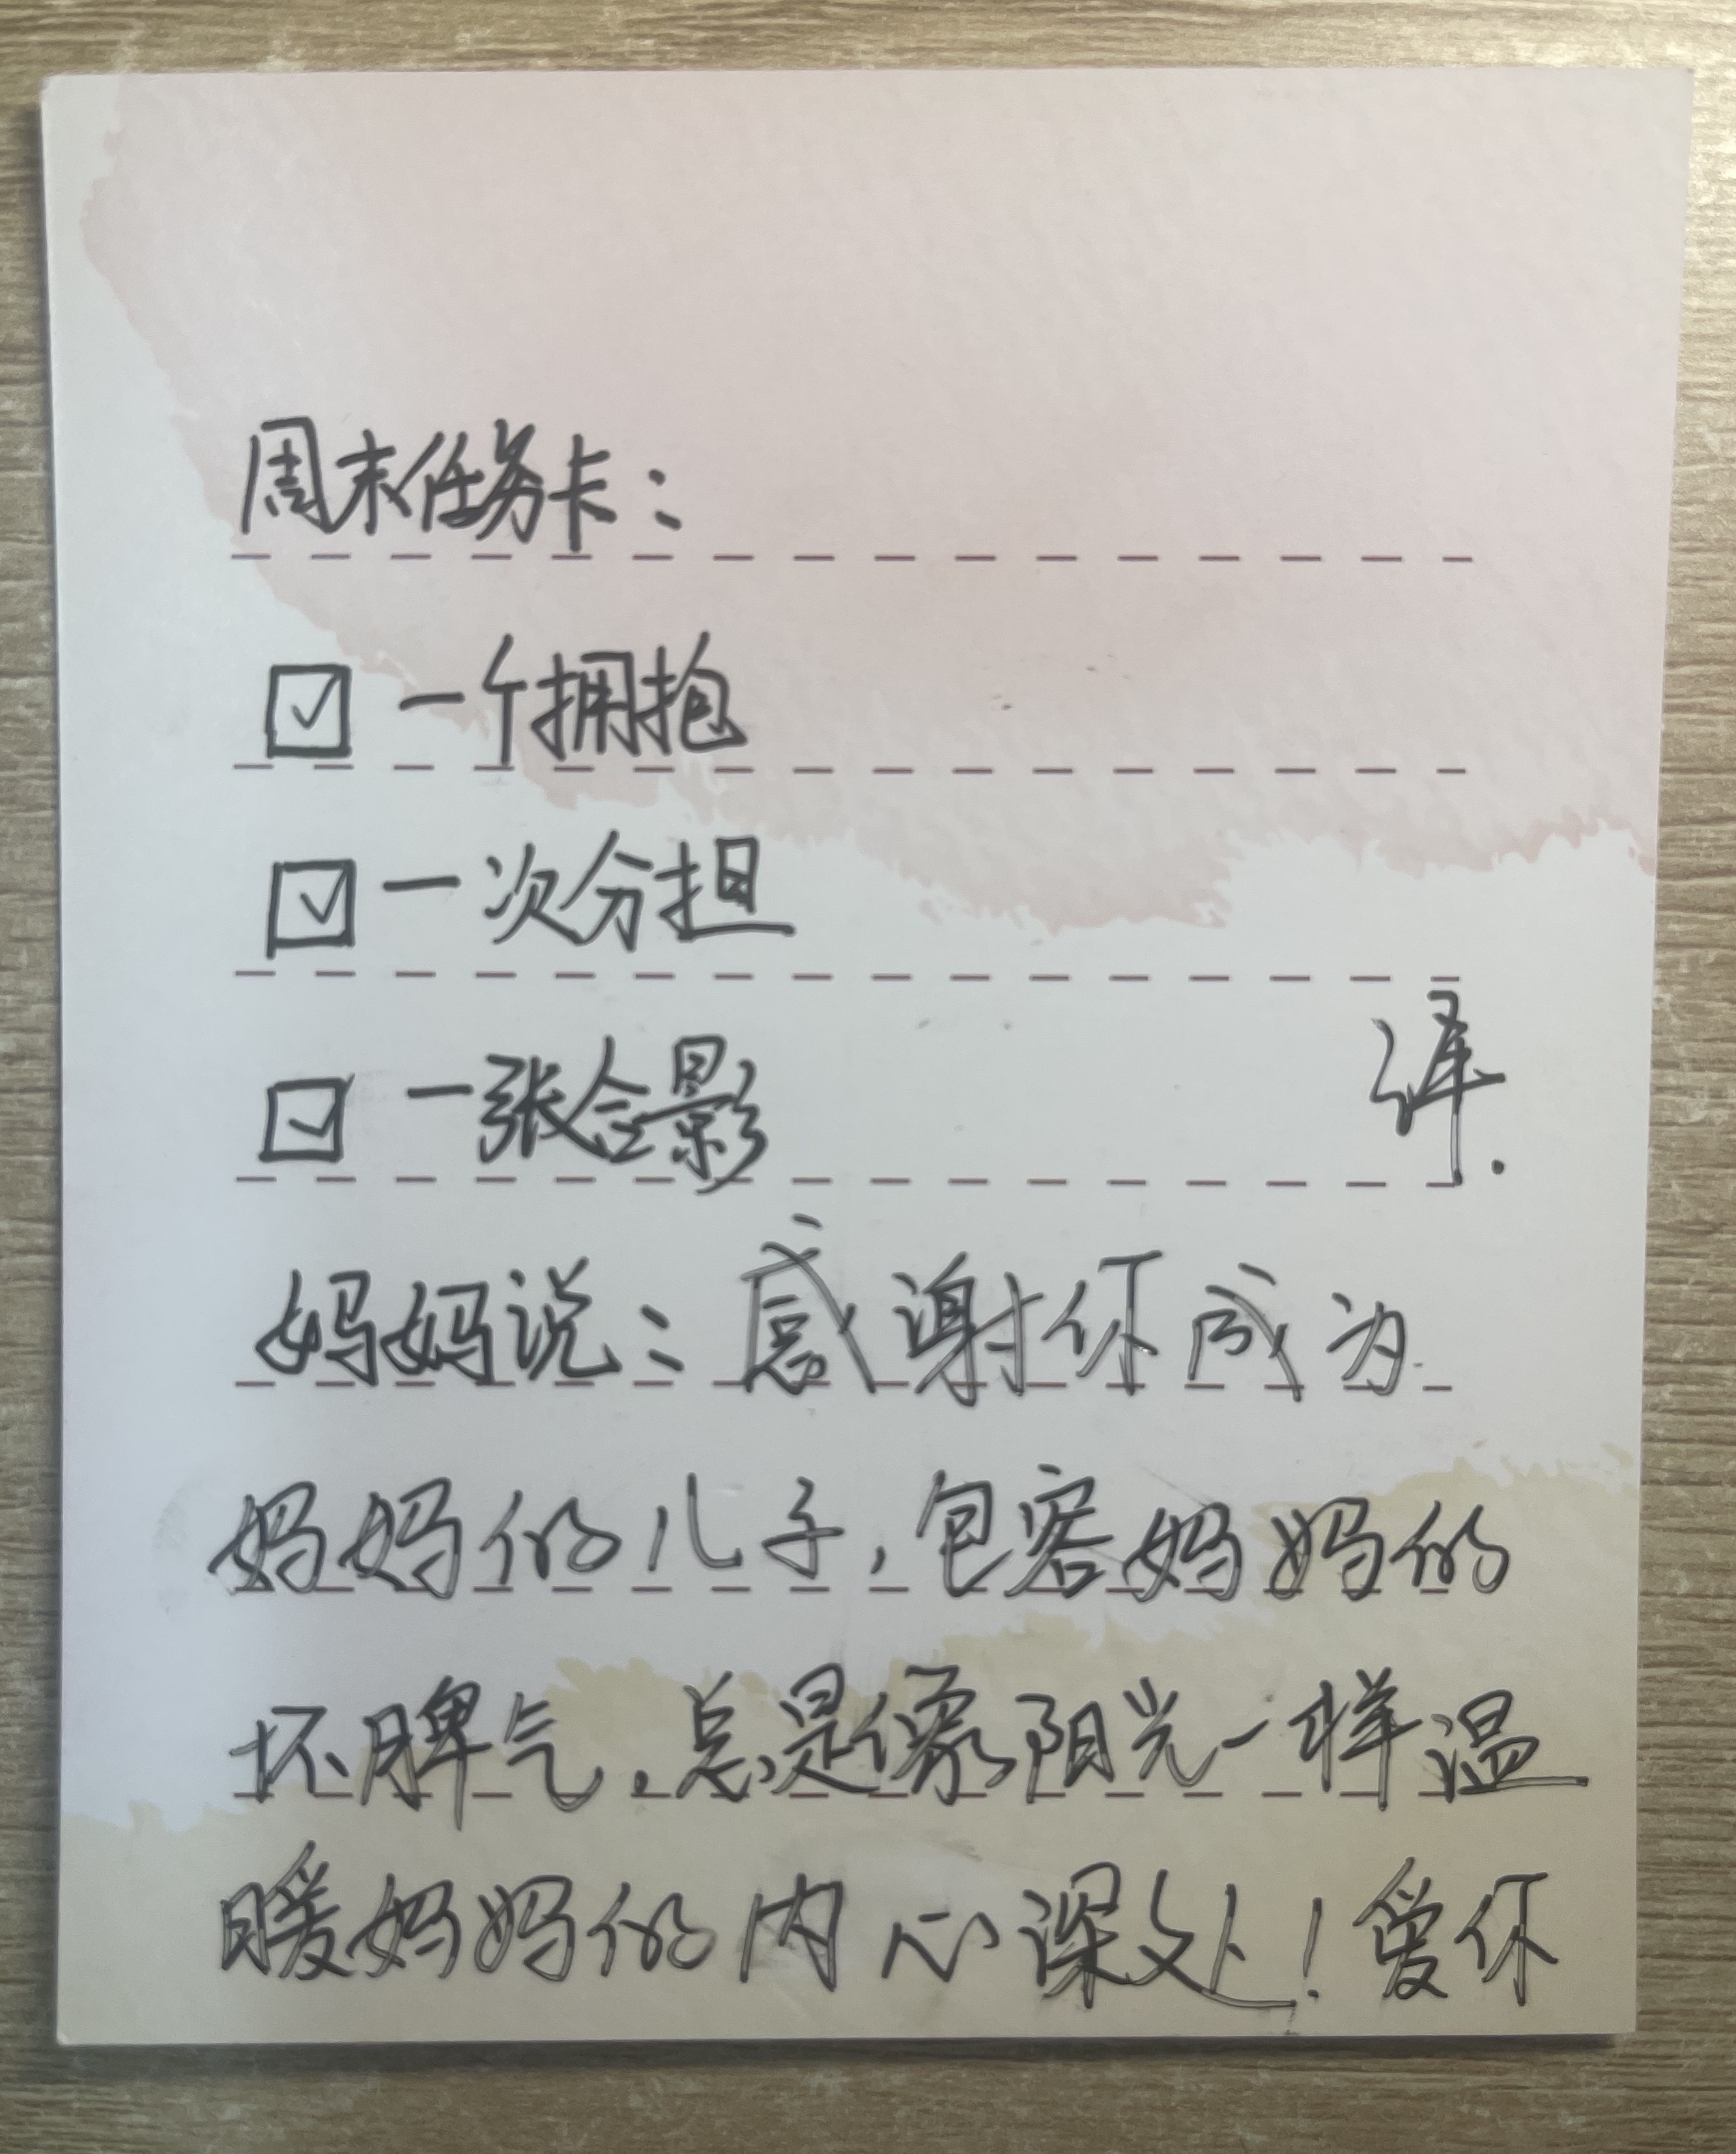 周末任务卡：
☑ 一个拥抱
☑ 一次分担
☑ 一张合影
译.
妈妈说：感谢你成为
妈妈的儿子，包容妈妈的
坏脾气，总是像阳光一样温
暖妈妈的内心深处！爱你